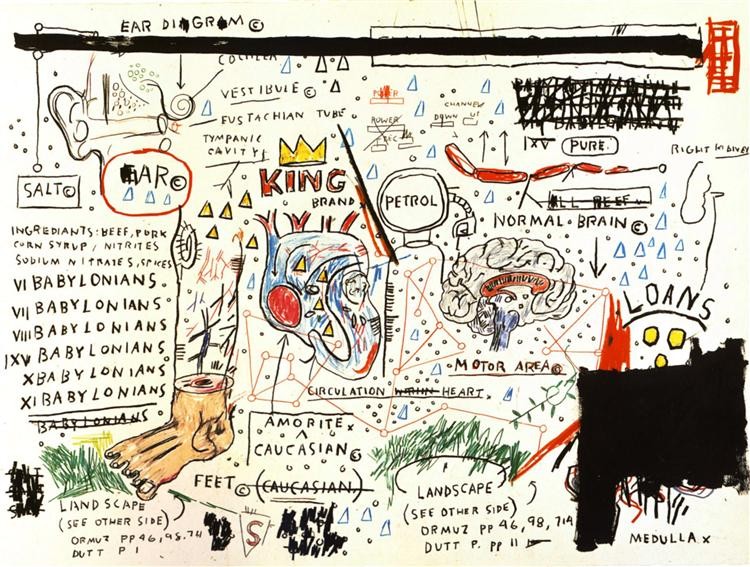 EAR DIAGRAM©
COCHLEA
VESTIBULE©
EUSTACHIAN TUBE
TYMPANIC
CAVITY
EAR©
SALT©
INGREDIANTS: BEEF, PORK
CORN SYRUP / NITRITES
SODIUM NITRATES, SPICES
VI BABYLONIANS.
VII BABYLONIANS
VIII BABYLONIANS
IXV BABYLONIANS
X BABYLONIANS
XI BABYLONIANS
BABYLONIANS
LANDSCAPE
(SEE OTHER SIDE)
ORMUZ PP 46, 98, 714
DUTT P 1
KING
BRAND
POWER
POWER
CHANNEL
DOWN UP
PETROL
IXV PURE.
ALL BEEF
NORMAL BRAIN©
RIGHT KIDNEY
LOANS
MOTOR AREA©
CIRCULATION WITHIN HEART.
AMORITE x
CAUCASIAN©
FEET© (CAUCASIAN)
S
LANDSCAPE
(SEE OTHER SIDE)
ORMUZ PP 46, 98, 714
DUTT P. PP 11
MEDULLA x